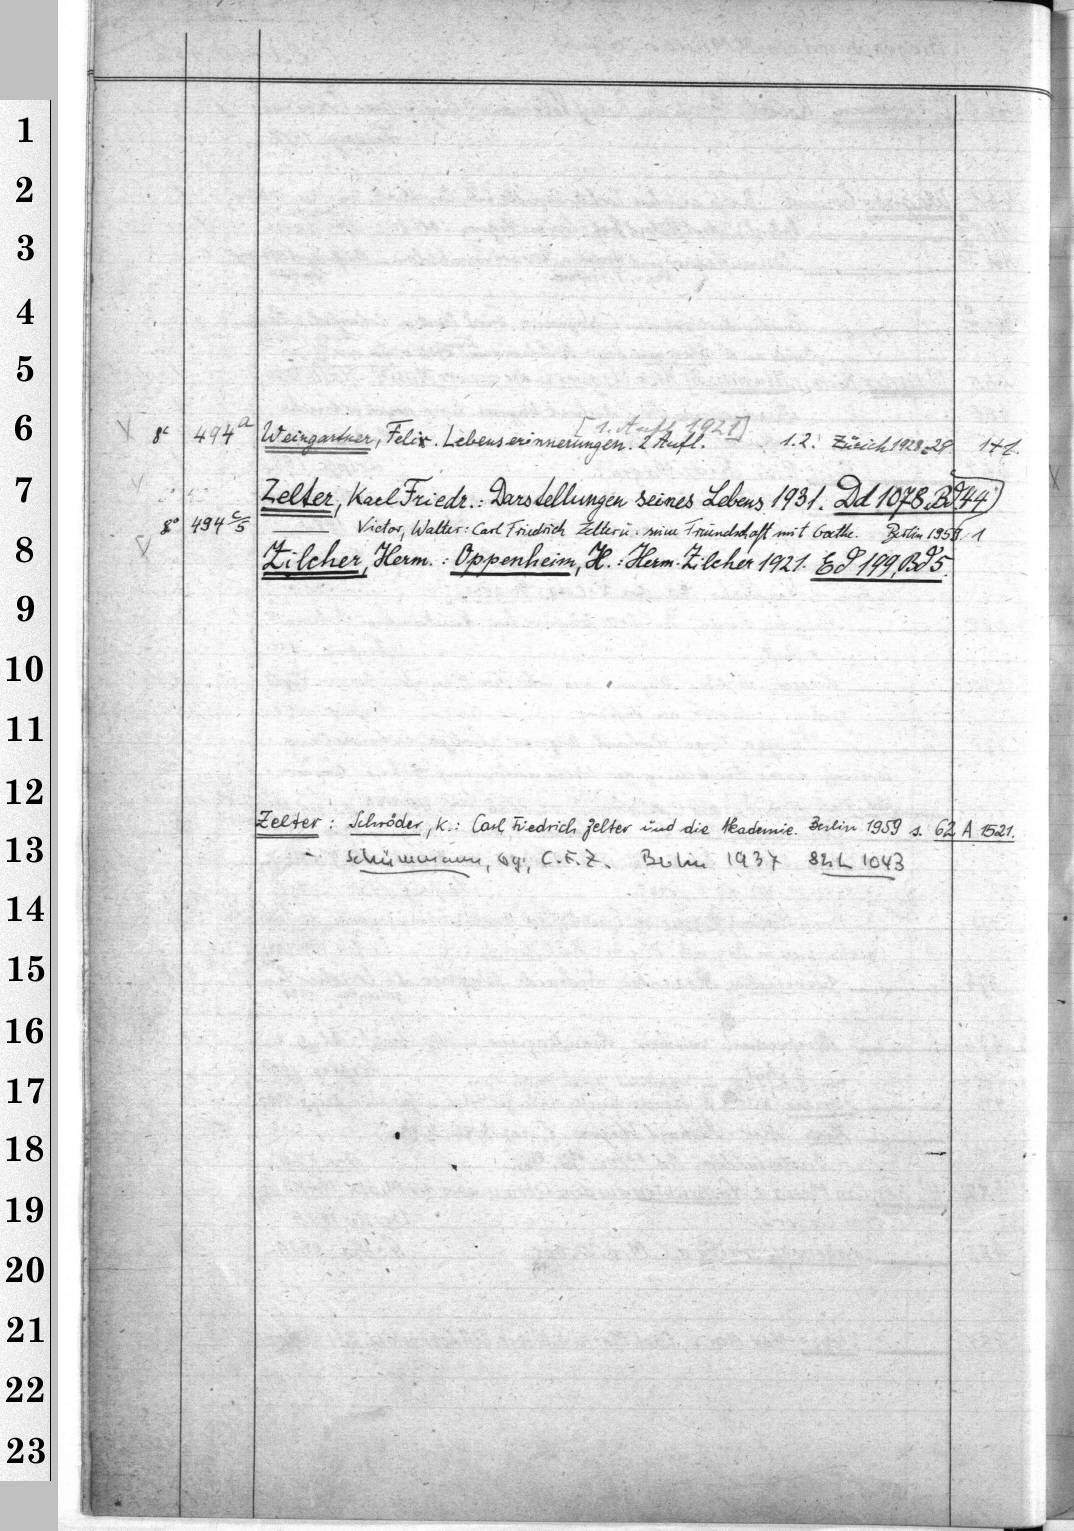 1
2
3
4
5
6
[1. Aufl. 1921]
8° 494a Weingartner, Felix. Lebenserinnerungen. 2 Aufl. 1.2. Zürich 1928-29 1+1.
7
Zelter, Karl Friedr.: Darstellungen seines Lebens 1931. Dd 1078, Bd 44
8° 494 c/5 Victor, Walter: Carl Friedrich Zelter u. seine Freundschaft mit Goethe. Berlin 1959. 1
8
Zilcher, Herm.: Oppenheim, H.: Herm. Zilcher 1921. Ed 199, Bd 5.
9
10
11
12
Zelter: Schröder, K.: Carl Friedrich Zelter und die Akademie. Berlin 1959 s. 62 A 1521.
13
Schünemann, Gg., C.F.Z. Berlin 1937 1043
14
15
16
17
18
19
20
21
22
23